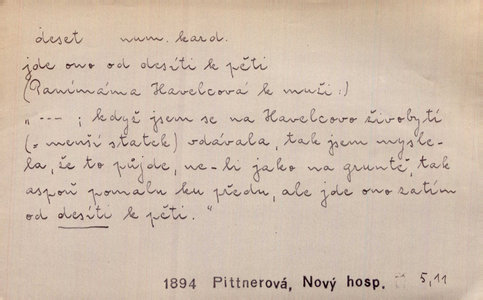 deset num. kard.
jde ono od desíti k pěti
(Panímáma Havelcová k muži:)
„ --- ; když jsem se na Havelcovo živobytí
(= menší statek) vdávala, tak jsem mysle-
la, že to půjde, ne-li jako na gruntě, tak
aspoň pomalu ku předu, ale jde ono zatím
od desíti k pěti. "
1894 Pittnerová, Nový hosp. 5,11